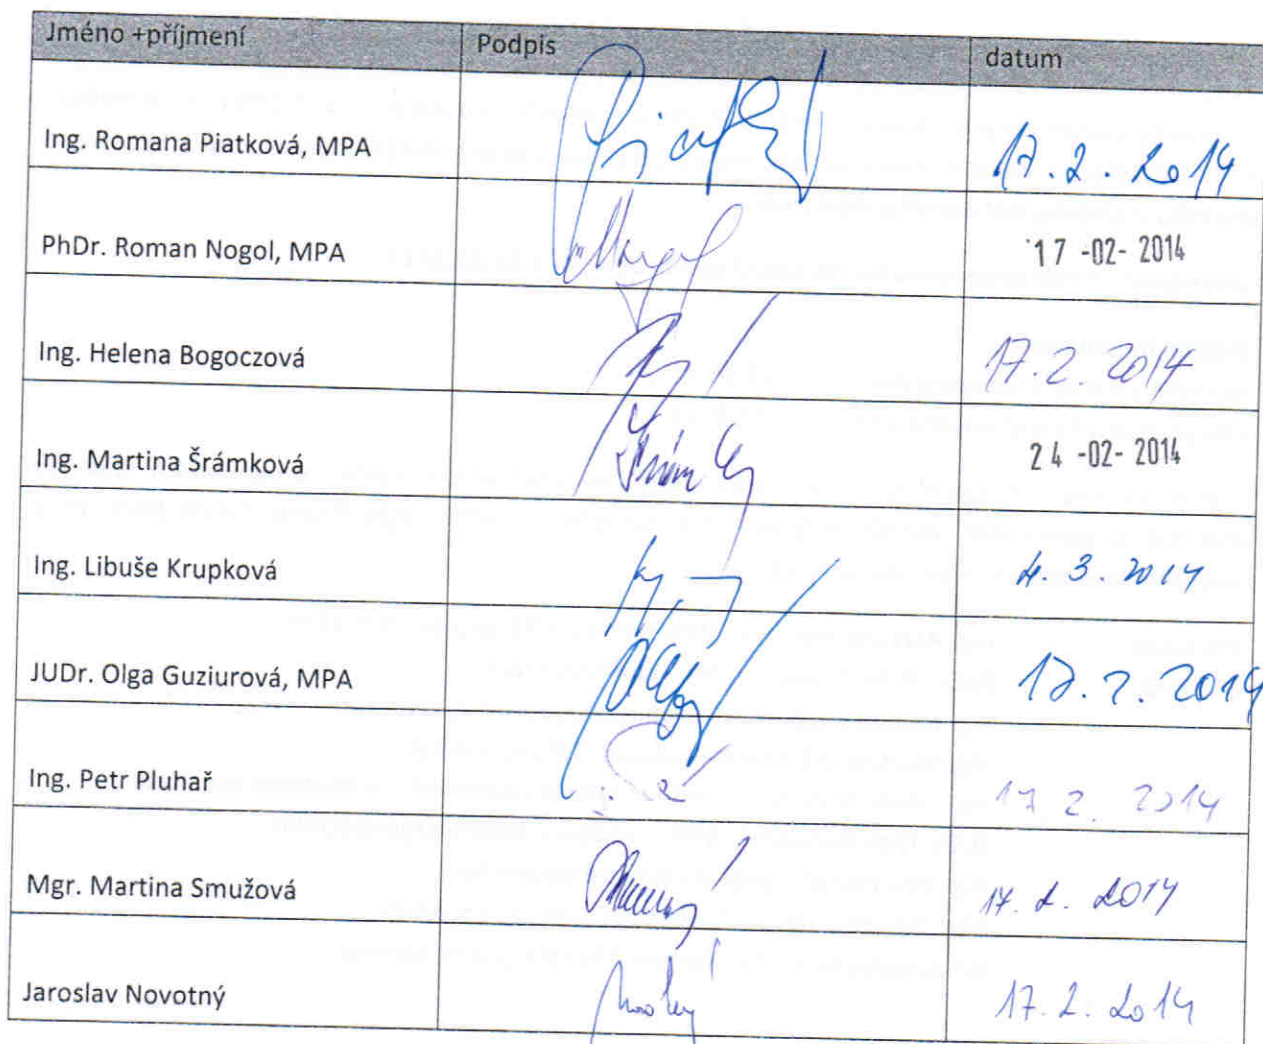 Jméno +příjmení Podpis datum
Ing. Romana Piatková, MPA 17.2.2014
PhDr. Roman Nogol, MPA 17 -02- 2014
Ing. Helena Bogoczová 17.2 2014
Ing. Martina Šrámková 24 -02- 2014
Ing. Libuše Krupková 4.3.2014
JUDr. Olga Guziurová, MPA 17.2.2014
Ing. Petr Pluhař 17 2. 2014
Mgr. Martina Smužová 17.2.2014
Jaroslav Novotný 17.2.2014